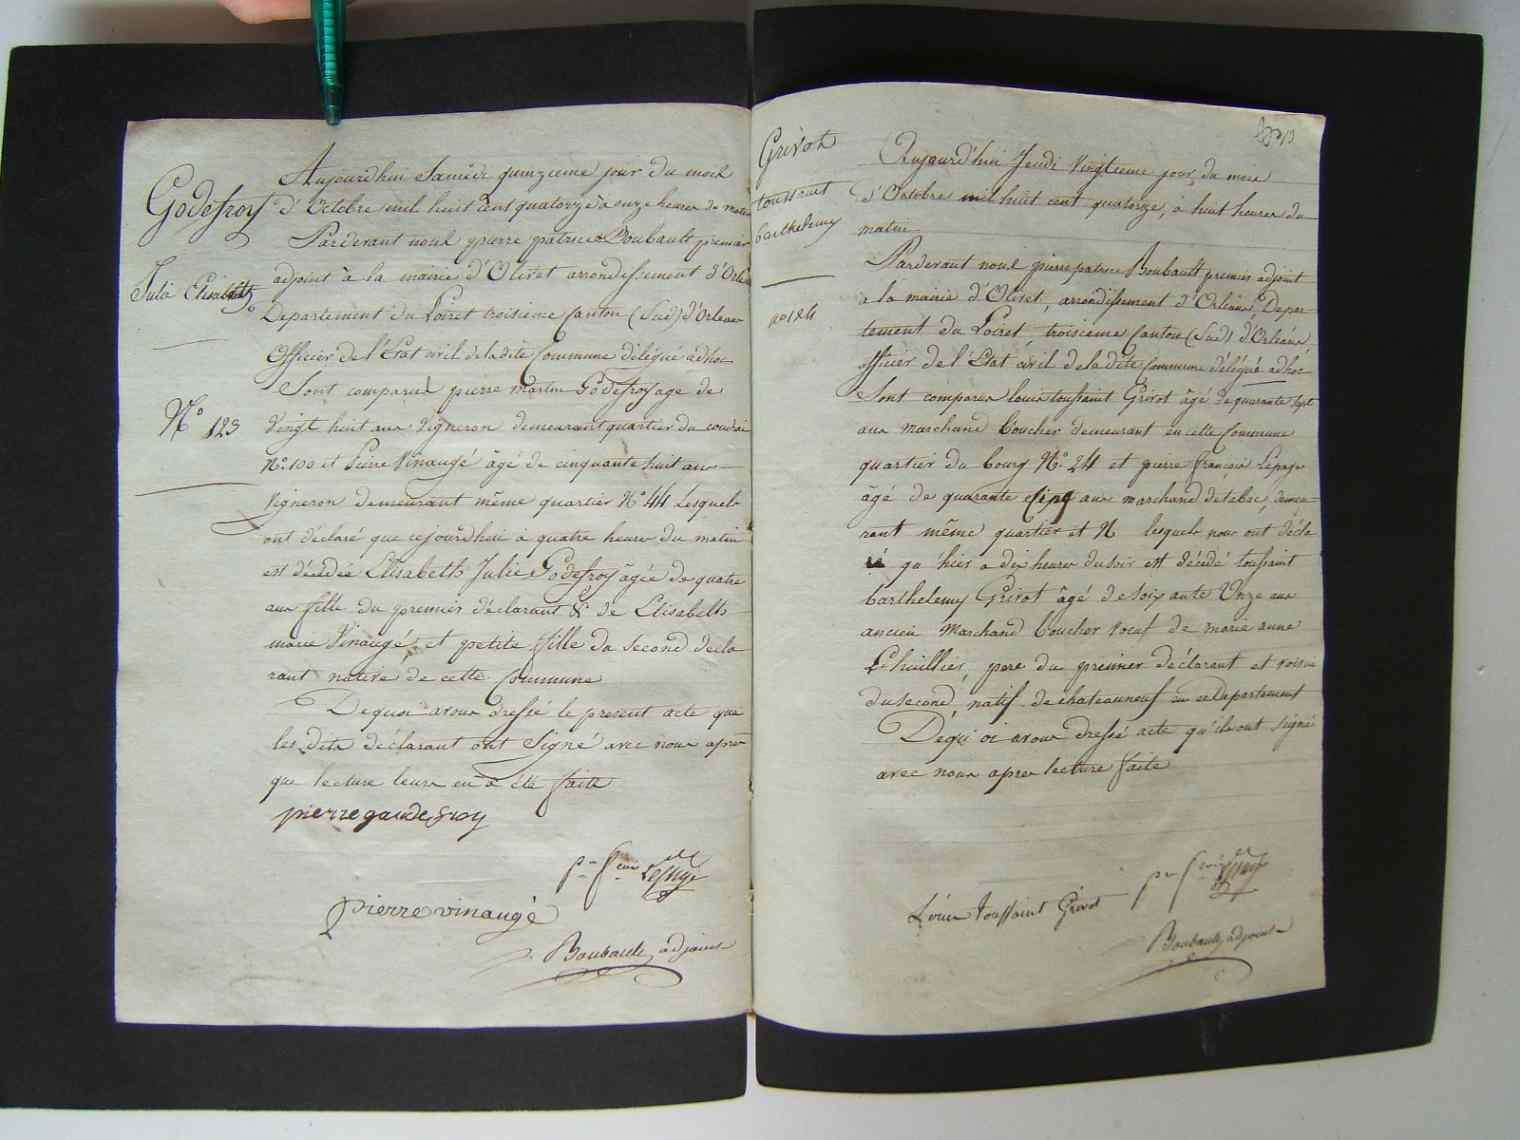 Godefroy
Julie Elisabeth
N° 123
Aujourdhui Samedi quinzieme jour du mois
d'Octobre mil huit cent quatorze à onze heures du matin
Pardevant nous pierre patrice Boubault premier
adjoint à la mairie d'Olivet arrondissement d'Orleans
Departement du Loiret troisième Canton (Sud) d'Orleans
officier de l'Etat civil de la dite Commune délégué adhoc
Sont comparus pierre martin Godefroy age de
Vingt huit ans Vigneron demeurant quartier du coudrai
N° 100 et Pierre Vinaugé âgé de cinquante huit ans
Vigneron demeurant même quartier N° 44 Lesquels
ont déclaré que cejourdhui à quatre heures du matin
est décédée Elisabeth Julie Godefroy âgée de quatre
ans fille du premier déclarant & de Elisabeth
marie Vinaugé, et petite fille du second decla
rant native de cette Commune
De quoi avons dressé le present acte que
les dits déclarant ont Signé avec nous après
que lecture leurs en a été faite
pierre gaudefroy
pierre vinaugé
Boubault adjoint
Grivot
toussaint
barthelemy
no 124
Aujourd'hui Jeudi Vingtieme jour du mois
d'Octobre mil huit cent quatorze, à huit heures du
matin
Pardevant nous pierre patrice Boubault premier adjoint
a la mairie d'Olivet, arrondissement d'Orléans, Depar-
tement du Loiret, troisième Canton (Sud) d'Orléans
officier de l'Etat civil de la dite Commune délégué adhoc
Sont comparus louis toussaint Grivot âgé de quarante Sept
ans Marchand Boucher demeurant en cette Commune
quartier du bourg N° 24 et pierre françois Lepage
âgé de quarante Cinq ans marchand de tabac, demeu-
rant même quartier et N lesquels nous ont décla
ré qu'hier a dix heures du soir est décédé toussaint
barthelemy Grivot âgé de soixante Onze ans
ancien Marchand boucher veuf de marie anne
Lhuillier, pere du premier déclarant et voisin
du second, natif de chateauneuf en ce Departement
De qui oi avons dressé acte qu'ils ont signé
avec nous apres lecture faite
Louis Toussaint Grivot
Boubault adjoint